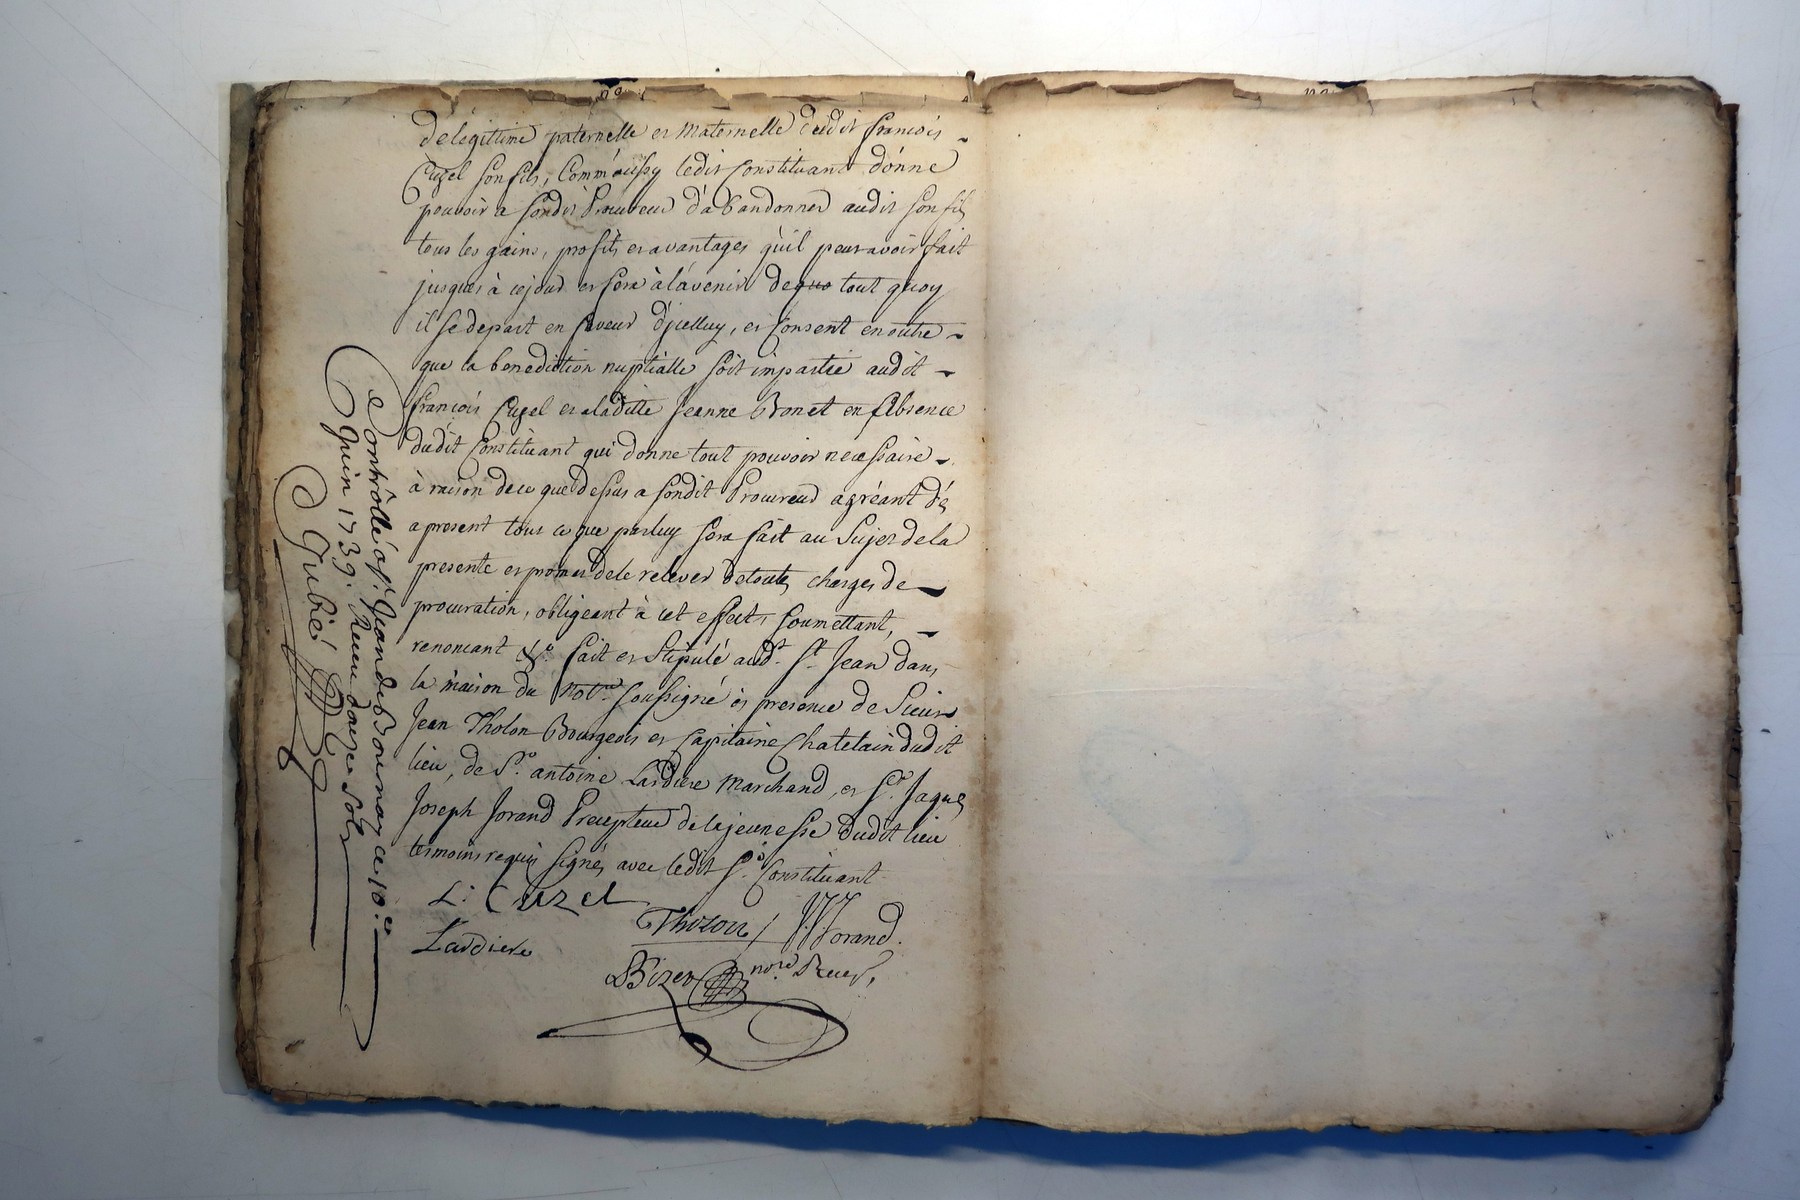 de legittime paternelle et maternelle dudit francois
Cuzel son fils, Comm'aussy ledit Constituant donne
pouvoir a sondit Procureur d'abandonner audit son fils
tous les gains, profits et avantages qu'il peut avoir fait
jusques à ce jour et fera à l'avenir de quo tout quoy
il se depart en faveur d'jcelluy, et Consent en outre
que la benediction nuptialle soit impartie audit
francois Cuzel et a laditte Jeanne Bonet en l'absence
dudit Constituant qui donne tout pouvoir necessaire
à raison de ce que dessus a sondit Procureur agréant dés
a present tout ce que par luy sera fait au Sujet de la
presente et promet de le relever de toutes charges de
procuration, obligeant à cet effect, soumettant,
renoncant &c. fait et Stipulé aud.t St Jean dans
la maison du not.re soussigné és presence de Sieur
Jean Tholon Bourgeois et Capitaine Chatelain dudit
lieu, de Sr. antoine Lardiere Marchand, et Sr. Jaques
Joseph Jorand Precepteur de la jeunesse dudit lieu
temoins requis signés avec ledit Sr. Constituant
L: Cuzel
Tholon JJ Jorand.
Lardiere
Bizet no.re Recev.
Controllé a St. Jean de Bournay ce 10.e
Juin 1739. Receu douze sols
Gubié